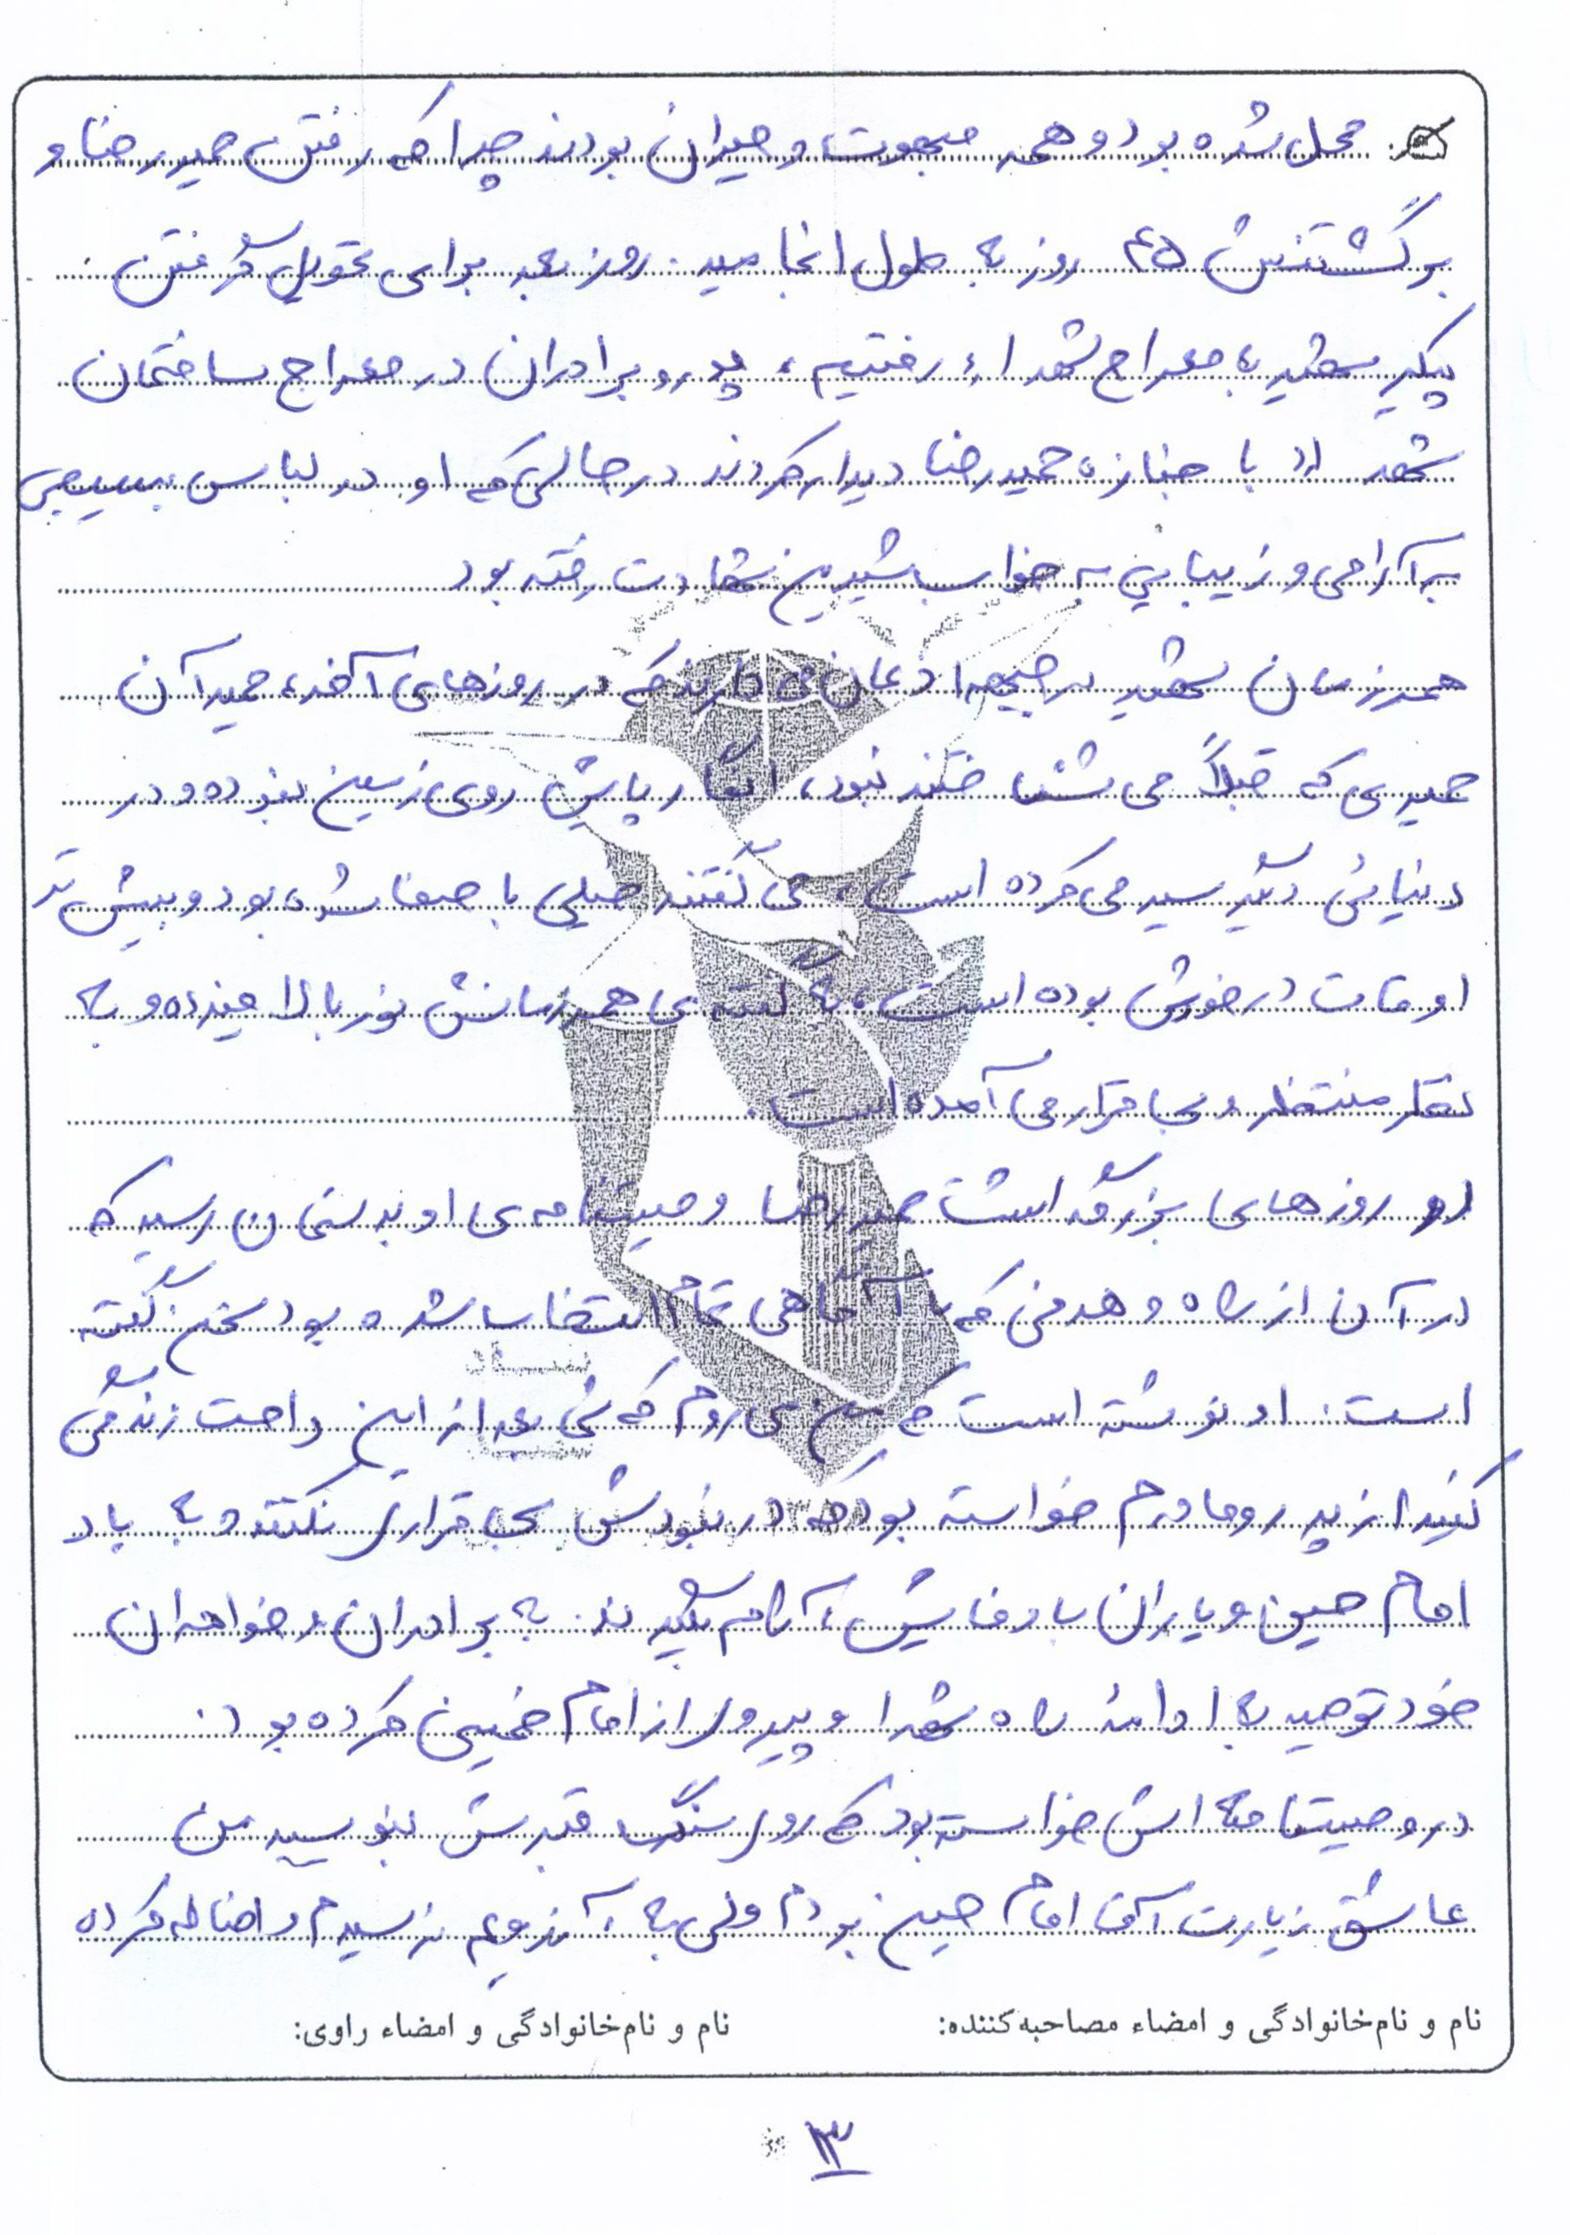 محل شده بود و همه مبهوت و حیران بودند چرا که رفتن حمیدرضا و
برگشتنش ۴۵ روز به طول انجامید. روز بعد برای تحویل گرفتن
پیکر شهید به معراج شهداء رفتیم، پدر و برادران در معراج ساختمان
شهدا با جنازه حمیدرضا دیدار کردند در حالی که او در لباس بسیجی
به آرامی و زیبایی به خواب شیرین شهادت رفته بود
همرزمان شهید در جبهه اذعان می دارند که در روزهای آخر، حمید آن
حمیدی که قبلاً می شناختند نبود، انگار پایش روی زمین نبوده و در
دنیائی دیگر سیر می کرده است، می گفتند خیلی با صفا شده بود و بیش تر
اوقات در خودش بوده است، به گفته ی همرزمانش نور بالا میزده و به
نظر منتظر و بی قرار می آمده است.
روزهای بزرگداشت حمیدرضا وصیتنامه ی او بدستمان رسید که
در آن از راه و هدفی که با آگاهی تمام انتخاب شده بود سخن گفته
است. او نوشته است که من می روم که شما بعد از این راحت زندگی
کنید از پدر و مادرم خواسته بود که در نبودش بی قراری نکنند و به یاد
امام حسین و یاران باوفایش، آرام بگیرند. به برادران و خواهران
خود توصیه به ادامهٔ راه شهدا و پیروی از امام خمینی کرده بود.
در وصیتنامه اش خواسته بود که روی سنگ قبرش بنویسید من
عاشق زیارت آقا امام حسین بودم ولی به آرزویم نرسیدم و اضافه کرده
نام و نام‌خانوادگی و امضاء مصاحبه‌کننده: نام و نام‌خانوادگی و امضاء راوی:
۳